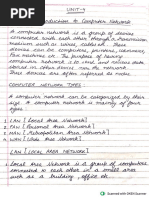 UNIT-4
Introduction to Computer Network
A computer network is a group of devices
connected with each other through a transmission
medium such as wires, cables etc. These
devices can be computers, printers, scanners,
Fax machines etc. The purpose of having
computer network is to send and receive
data stored in other devices over the network.
These devices are often referred as nodes.
COMPUTER NETWORK TYPES
A computer network can be categorized by their
size. A computer network is mainly of four
types
LAN [Local Area Network]
PAN [Personal Area Network]
MAN [Metropolitan Area Network]
WAN [Wide Area Network]
LAN [LOCAL AREA NETWORK]
Local Area Network is a group of computers
connected to each other in a small area
such as building, office etc.
Scanned with OKEN Scanner